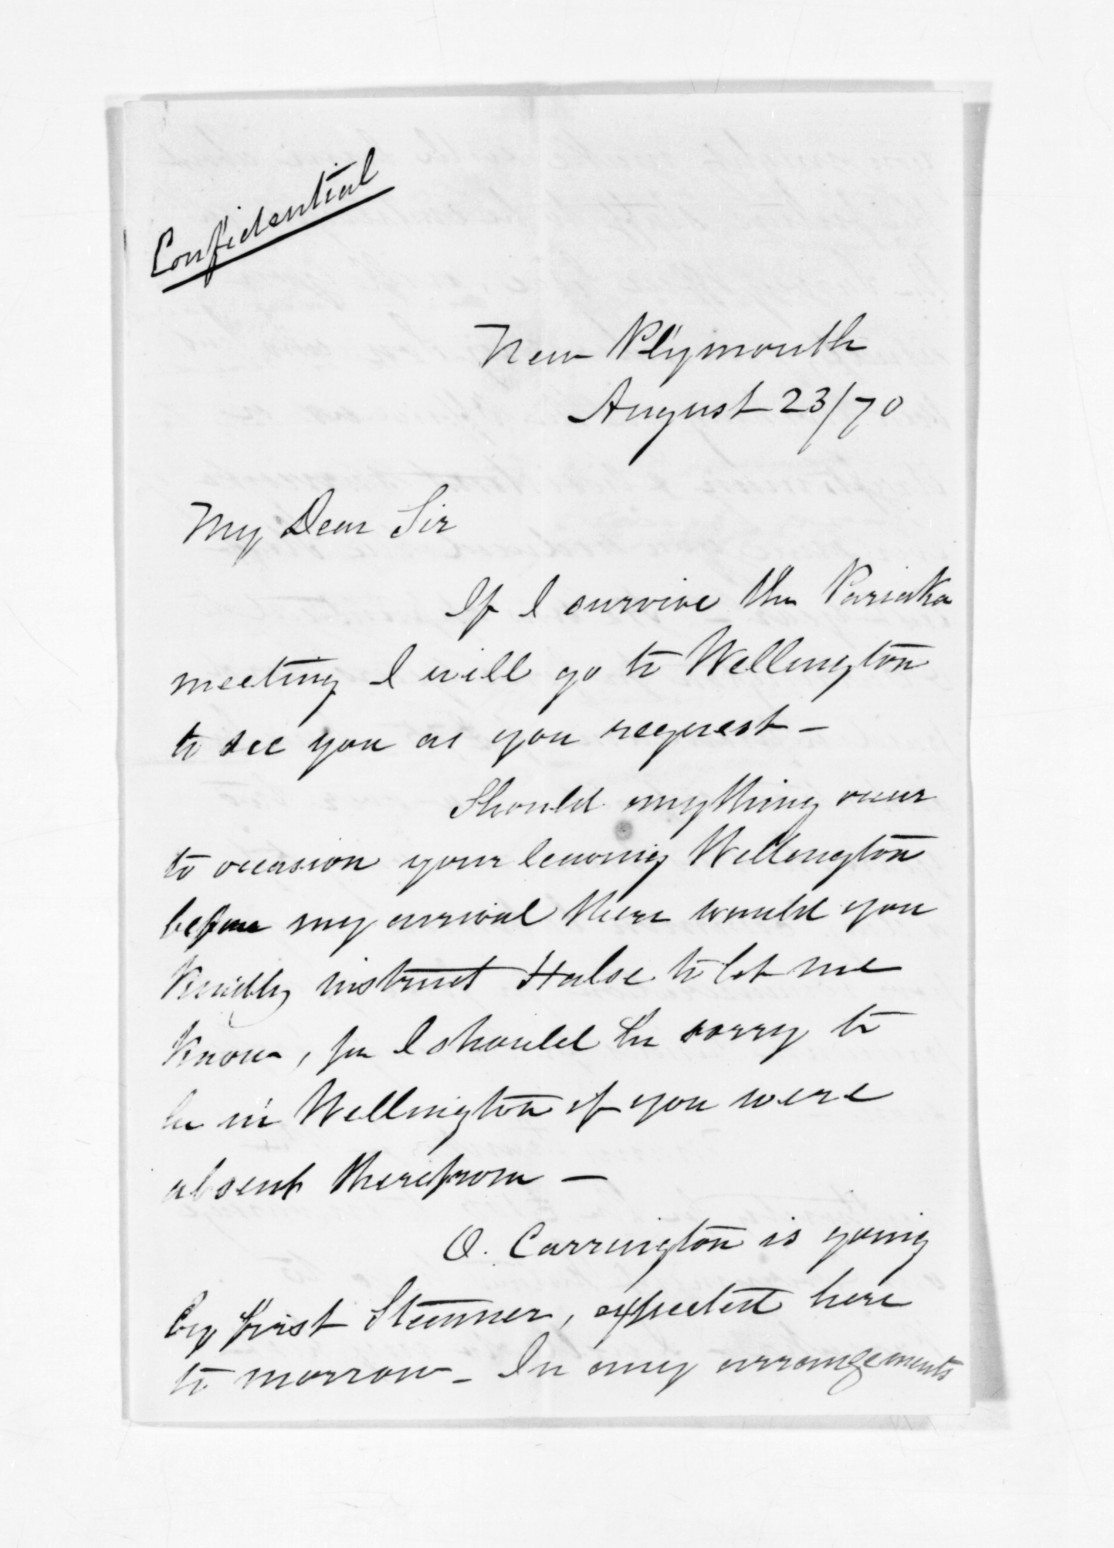 Confidential
New Plymouth
August 23/70
My Dear Sir
If I survive the Pariaka
meeting I will go to Wellington
to see you as you request –
Should anything occur
to occasion your leaving Wellington
before my arrival there would you
Kindly instruct Halse to let me
Know, for I should be sorry to
be in Wellington if you were
absent therefrom –
O. Carrington is going
by first Steamer, expected here
to morrow – In any arrangements